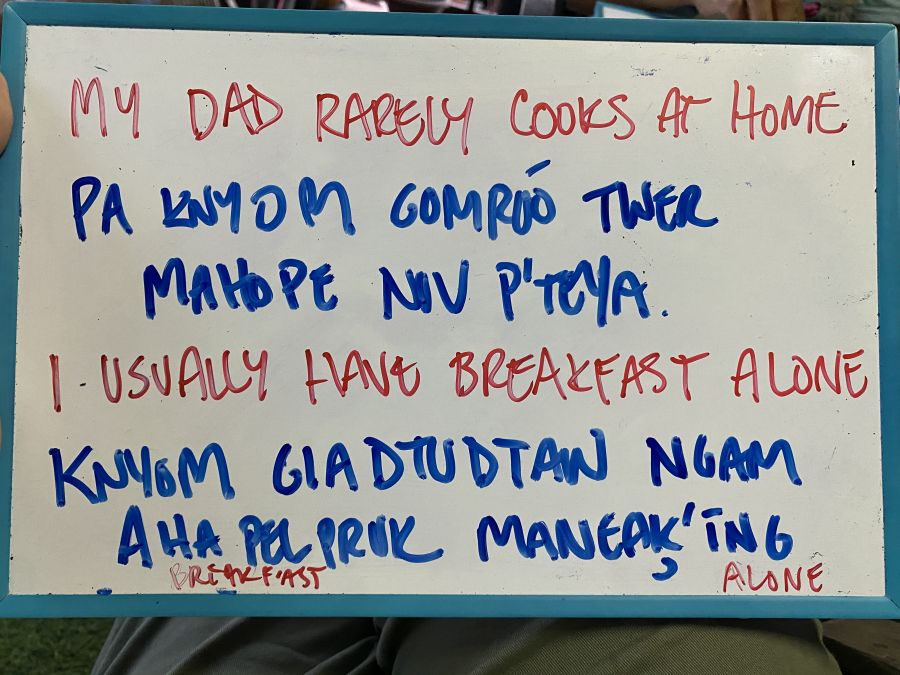 MY DAD RARELY COOKS AT HOME
PA KNYOM COMROÓ TWER
MAHOPE NIV P'TEYA.
I USUALLY HAVE BREAKFAST ALONE
KNYOM GIADTUDTAIN NGAM
AHA PELPRUK MANEAK'ING
BREAKFAST ALONE